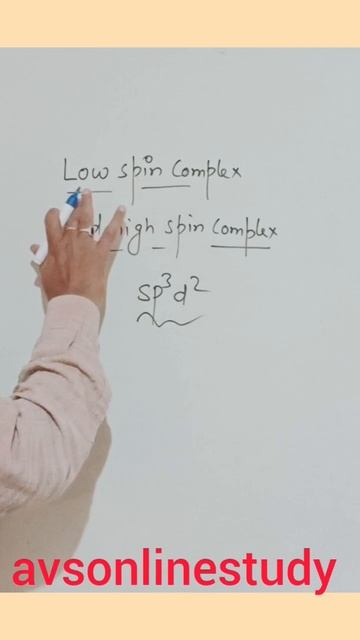 Low spin Complex
high spin Complex
sp³d²
avsonlinestudy